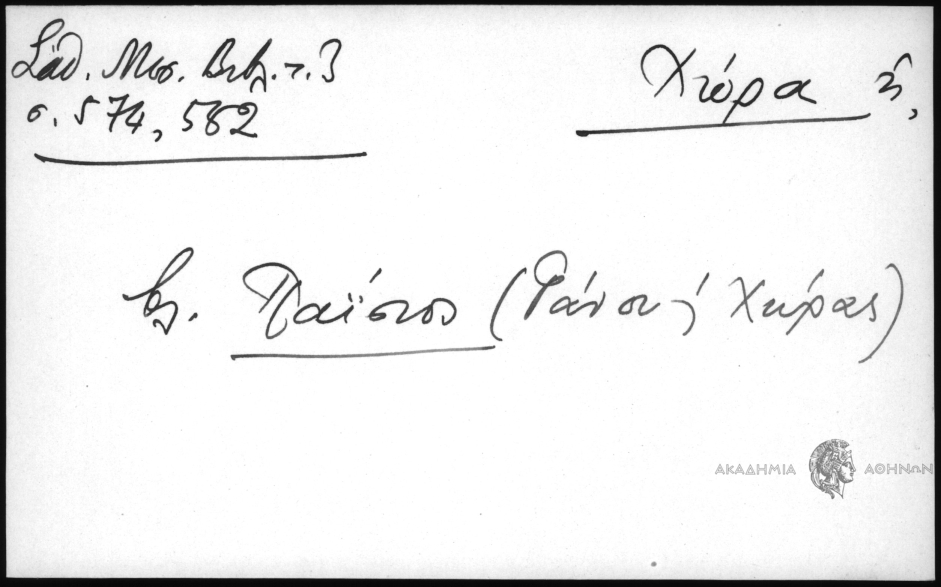 Σαθ. Μεσ. Βιβλ. τ. 3
σ. 574, 582
Χώρα ἡ,
βλ. Παΐσιος (Γάνου ἡ Χώρας)
ΑΚΑΔΗΜΙΑ ΑΘΗΝΩΝ